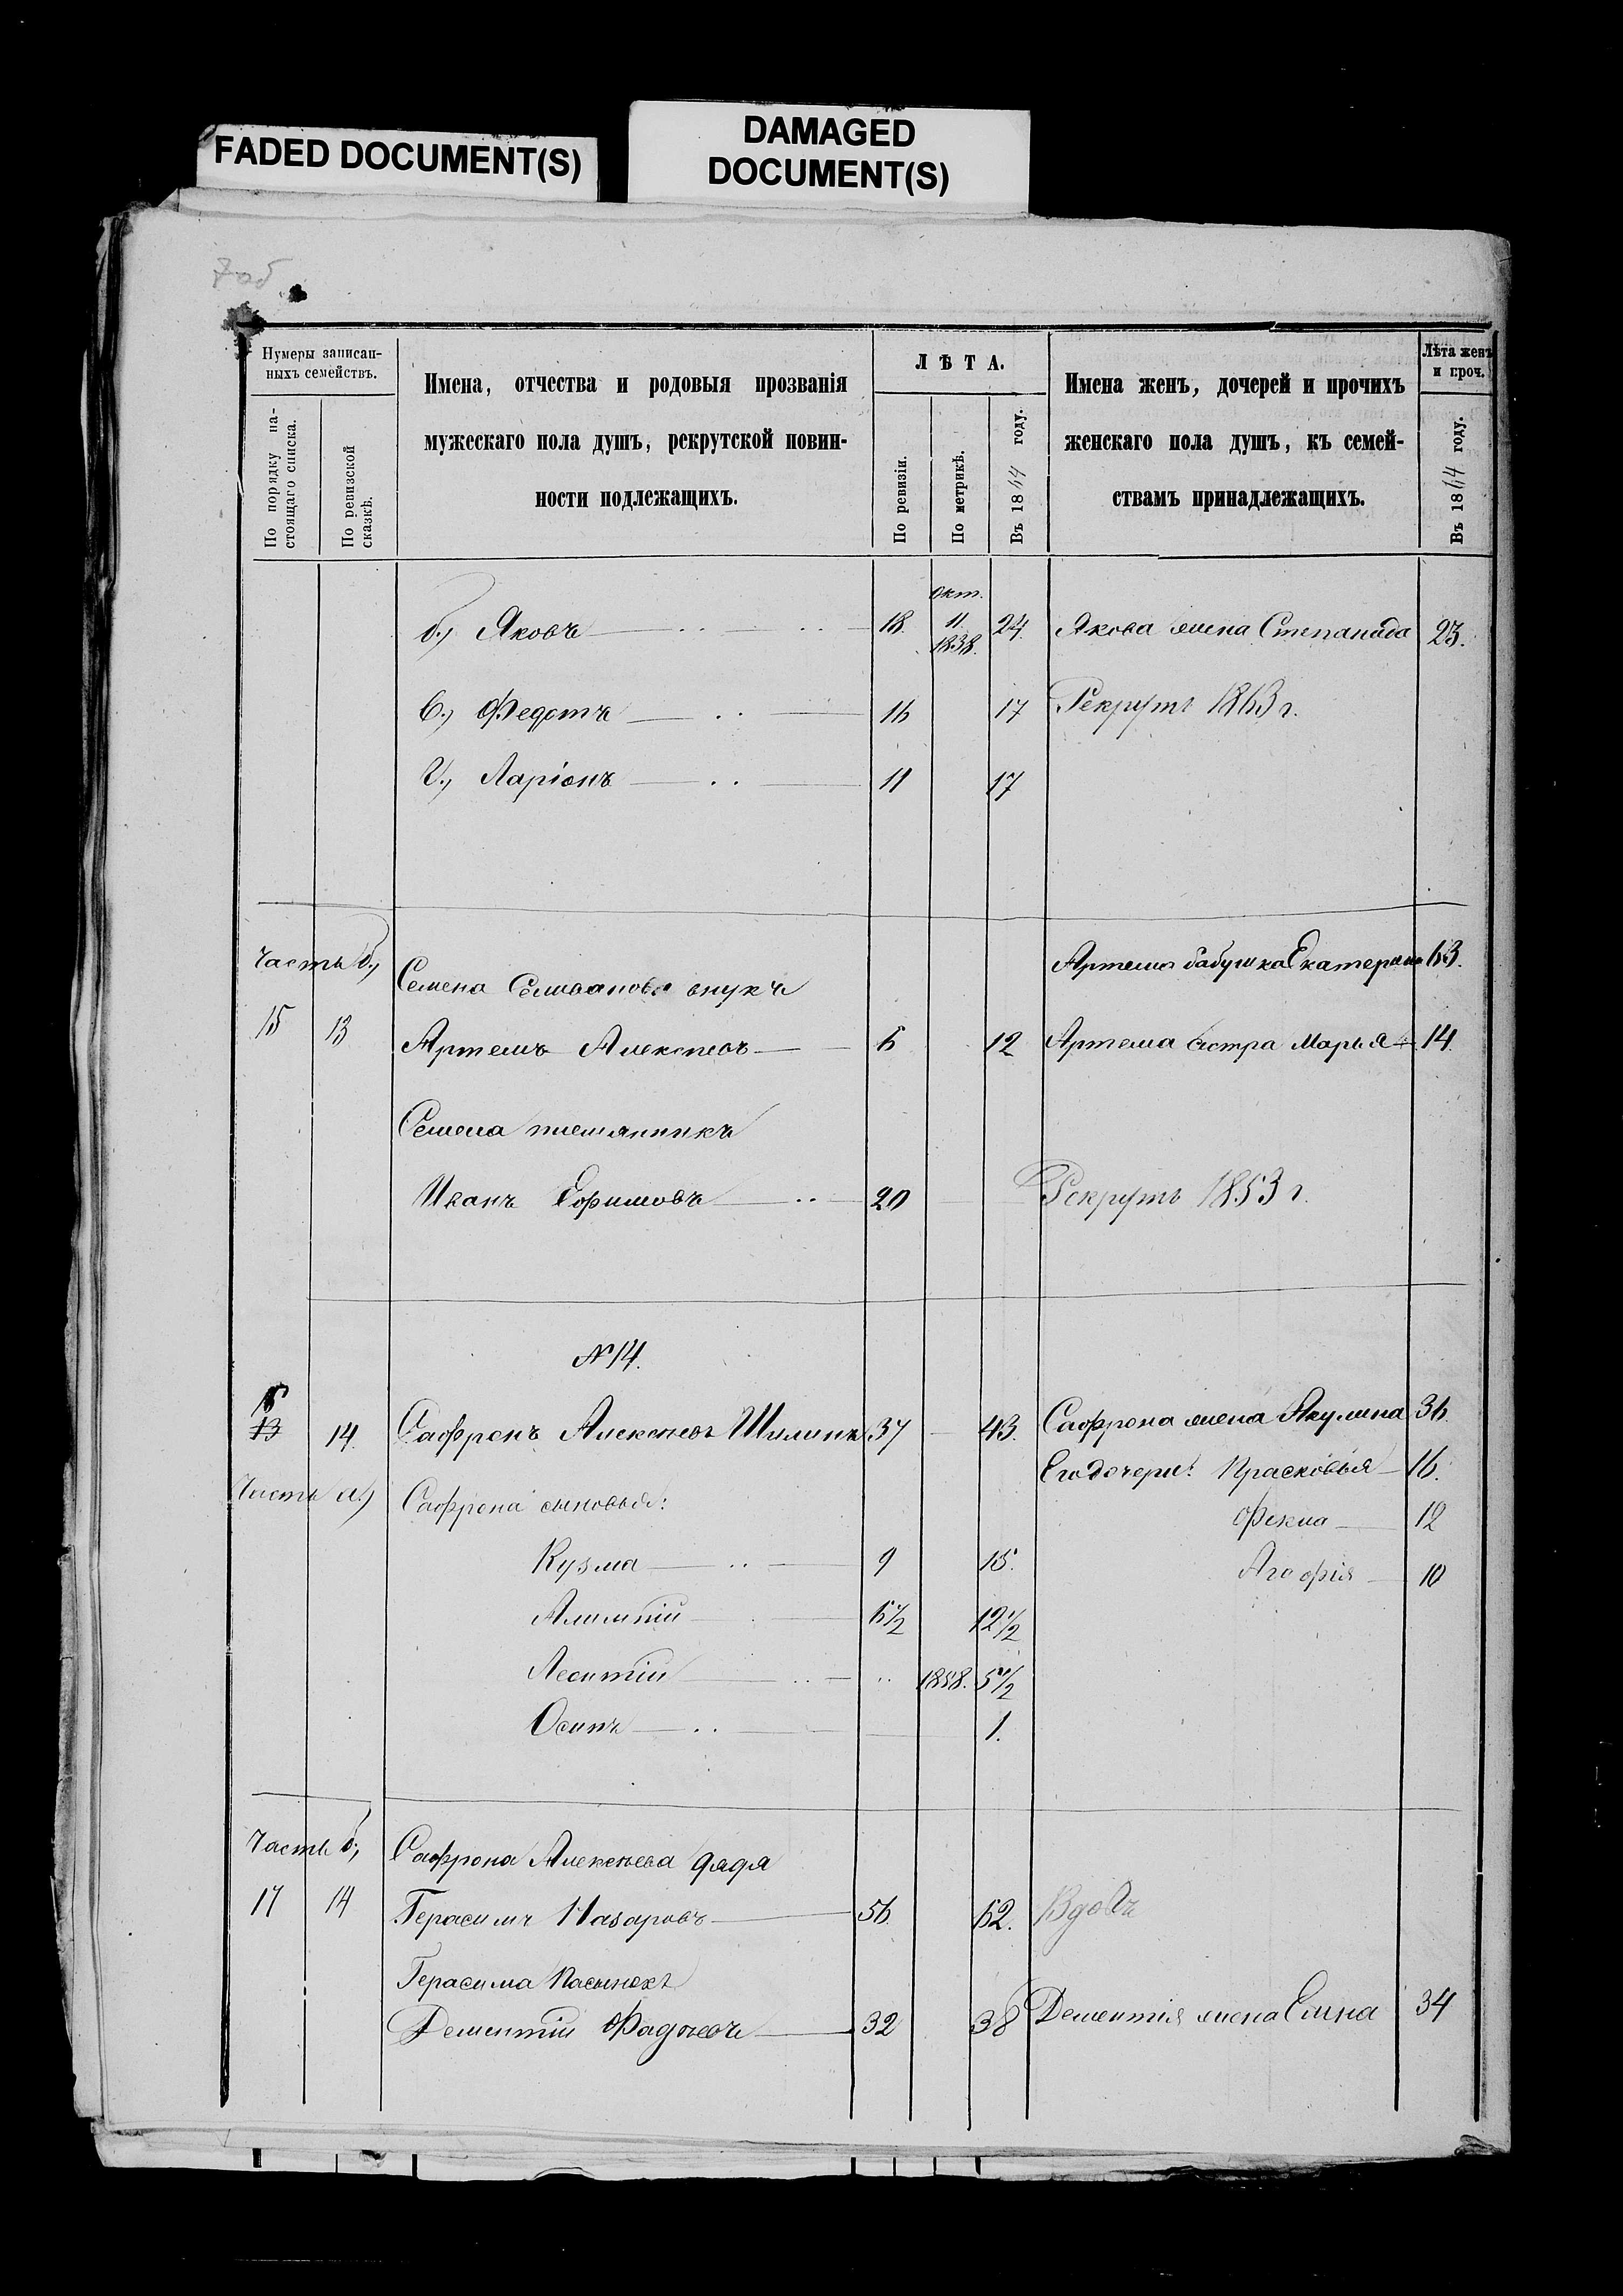 FADED DOCUMENT(S)
DAMAGED
DOCUMENT(S)
7об
Нумеры записан-
ныхъ семействъ.
По порядку на-
стоящаго списка.
По ревизской
сказкѣ.
Имена, отчества и родовыя прозванія
мужескаго пола душъ, рекрутской повин-
ности подлежащихъ.
ЛѢТА.
По ревизіи.
По метрикѣ.
Въ 1864 году.
Имена женъ, дочерей и прочихъ
женскаго пола душъ, къ семей-
ствамъ принадлежащихъ.
Лѣта женъ
и проч.
Въ 1864 году.
б., Яковъ 18. окт. 11. 1838. 24. Якова жена Степанида 23.
в., Федотъ 16 17 Рекрутъ 1863 г.
г., Ларіонъ 11 17
Часть б., Семена Селиванова внукъ Артема бабушка Екатерина 63.
15 13 Артемъ Алексѣевъ 6 12 Артема сестра Марья 14.
Семена племянникъ
Иванъ Ефимовъ 20 Рекрутъ 1853 г.
№ 14.
16
13 14. Сафронъ Алексѣевъ Шилинъ 37 43. Сафрона жена Акулина 36.
Его дочери: Прасковья 16.
Часть а.) Сафрона сыновья:
Фекла 12
Кузма 9 15. Агафія 10
Алимпій 6½ 12½
Леонтій 1858. 5½
Осипъ 1.
Часть б., Сафрона Алексѣева дядя
17 14 Герасимъ Назаровъ 56. 62. Вдовъ
Герасима пасынокъ
Дементій Фадѣевъ 32 38 Дементія жена Елена 34